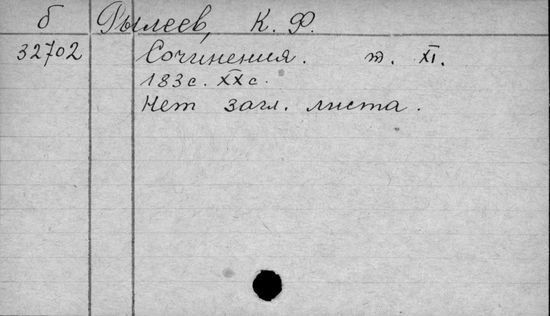 б Рылеев, К. Ф.
32702 Сочинения. т. XI.
183 с. XX с.
Нет загл. листа.